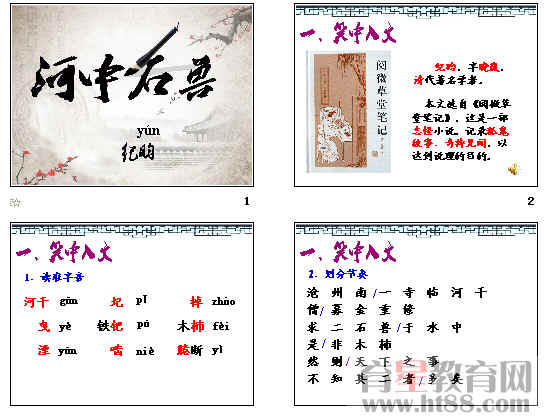 河中石兽
yún
纪昀
1
一、笑中入文
阅微草堂笔记
纪昀，字晓岚，
清代著名学者。
本文选自《阅微草
堂笔记》，这是一部
志怪小说，记录狐鬼
故事、奇特见闻，以
达到说理的目的。
2
一、笑中入文
1．读准字音
河干 gān 圮 pǐ 棹 zhào
曳 yè 铁钯 pá 木杮 fèi
湮 yān 啮 niè 臆断 yì
一、笑中入文
2．划分节奏
沧州南/一寺临河干
僧/募金重修
求二石兽/于水中
是/非木杮
然则/天下之事
不知其二者/多矣
育星教育网
www.ht88.com